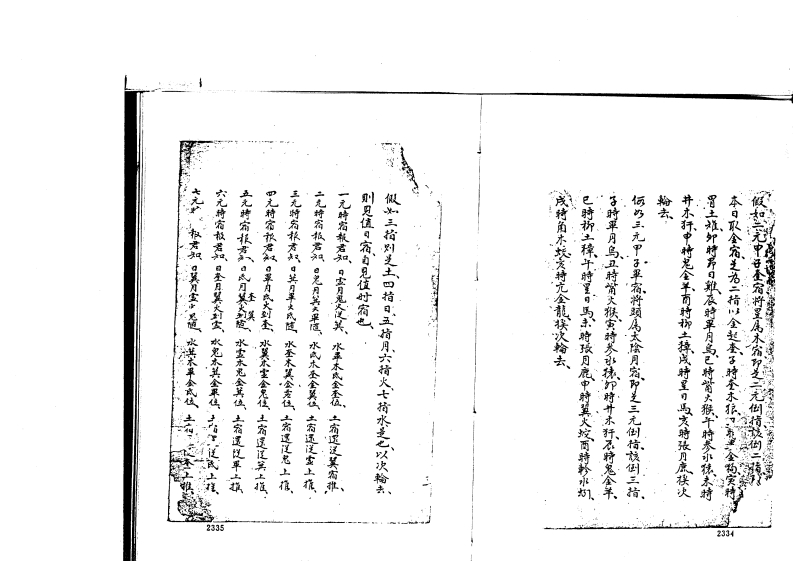 假如二元甲子奎宿將星屬木宿即是二元倒指該倒二指
本日取金宿是為二指以金起奎子時奎木狼金狗寅時
胃土雉卯時昴日雞辰時畢月烏巳時觜火猴午時參水猿未時
井木犴申時鬼金羊酉時柳土獐戌時星日馬亥時張月鹿挨次
輪去
何以三元甲子畢宿將頭屬太陰月宿即是三元倒指該倒三指
子時畢月烏丑時觜火猴寅時參水猿卯時井木犴辰時鬼金羊
巳時柳土獐午時星日馬未時張月鹿申時翼火蛇酉時軫水蚓
戌時角木蛟亥時亢金龍挨次輪去
2334
假如三指則是土四指日五指月六指火七指水是也以次輪去
則見值日宿自見值時宿也
一元時宿報君知日虛月鬼火從箕水畢木氐金奎位土宿還從翼宿推
二元時宿報君知日鬼月箕火畢隨水氐木奎金翼位土宿還從虛上推
三元時宿報君知日箕月畢火氐隨水奎木翼金虛位土宿還從鬼上推
四元時宿報君知日畢月氐火到奎水翼木虛金鬼位土宿還從箕上推
五元時宿報君知日氐月奎火到翼隨水虛木鬼金箕位土宿還從畢上推
六元時宿報君知日奎月翼火到虛水鬼木箕金畢位土從氐上推
七元報君知日翼月虛火鬼隨水箕木畢金氐位土奎上推
2335